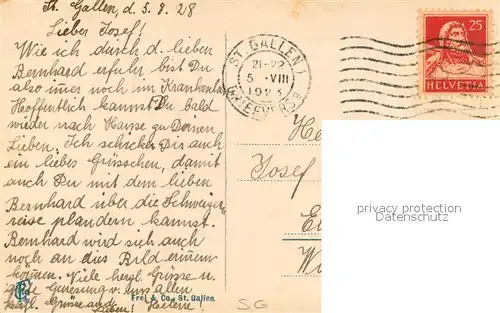 St. Gallen, d. 5.8.28
Lieber Josef!
Wie ich durch d. lieben
Bernhard erfuhr bist Du
also immer noch im Krankenhaus
Hoffentlich kannst Du bald
wieder nach Hause zu Deinen
Lieben. Ich schicke Dir auch
ein liebes Grüsschen, damit
auch Du mit dem lieben
Bernhard über die Schweizer
reise plaudern kannst.
Bernhard wird sich auch
noch an das Bild erinnern
können. Viele herzl. Grüsse u.
gute Genesung v. uns allen
Helene!
Frei & Co., St. Gallen
ST. GALLEN 1
21-22
5. VIII
BRIEFVERS
25
HELVETIA
Josef
privacy protection
Datenschutz
SG